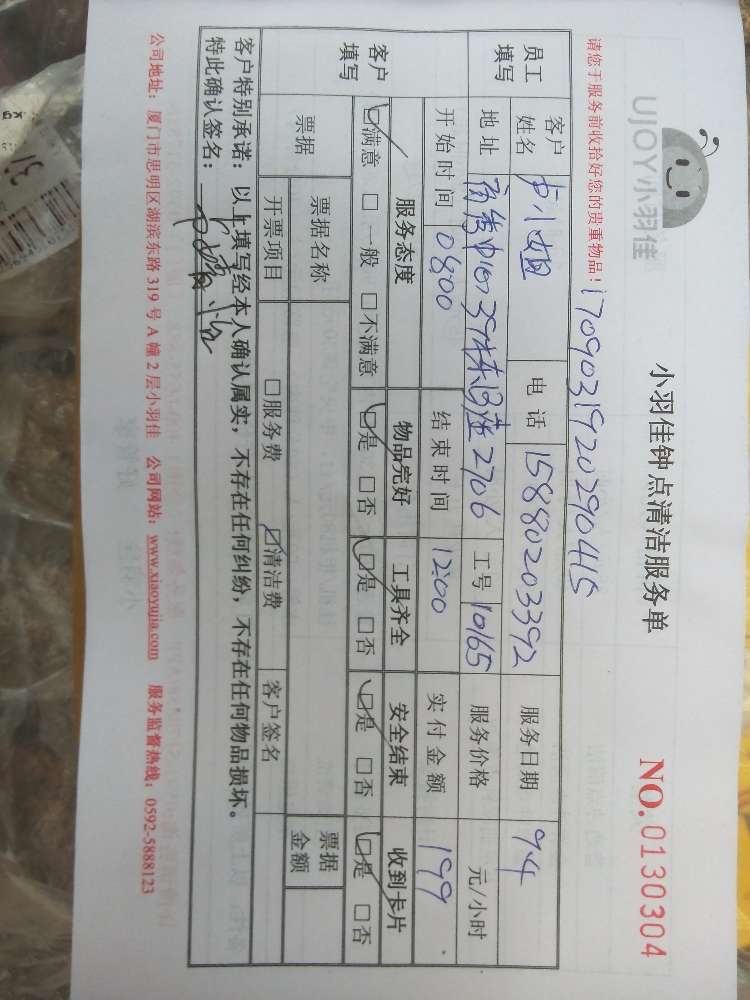 UJOY小羽佳
小羽佳钟点清洁服务单
NO.0130304
请您于服务前收拾好您的贵重物品!
1709031920290415
员工填写 客户姓名 卢小姐 电话 15880203392 服务日期 9.4
地址 39栋 2706 工号 10165 服务价格 元/小时
开始时间 08:00 结束时间 12:00 实付金额 199
客户填写 服务态度 物品完好 工具齐全 安全结束 收到卡片
☑满意 □一般 □不满意 ☑是 □否 ☑是 □否 ☑是 □否 ☑是 □否
票据 票据名称 票据金额
开票项目 □服务费 ☑清洁费 客户签名
客户特别承诺:以上填写经本人确认属实,不存在任何纠纷,不存在任何物品损坏。
特此确认签名:
公司地址:厦门市思明区湖滨东路319号A幢2层小羽佳 公司网站:www.xiaoyujia.com 服务监督热线:0592-5888123